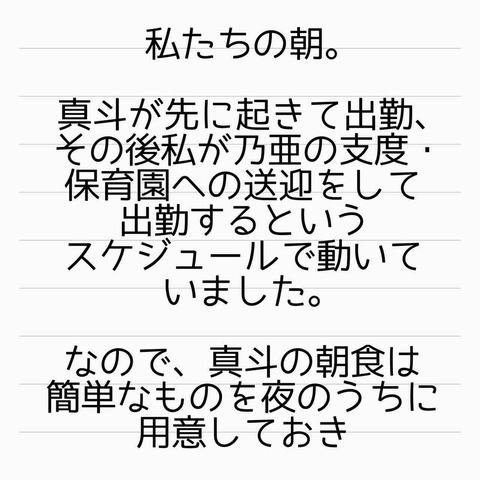 私たちの朝。
真斗が先に起きて出勤、
その後私が乃亜の支度・
保育園への送迎をして
出勤するという
スケジュールで動いて
いました。
なので、真斗の朝食は
簡単なものを夜のうちに
用意しておき